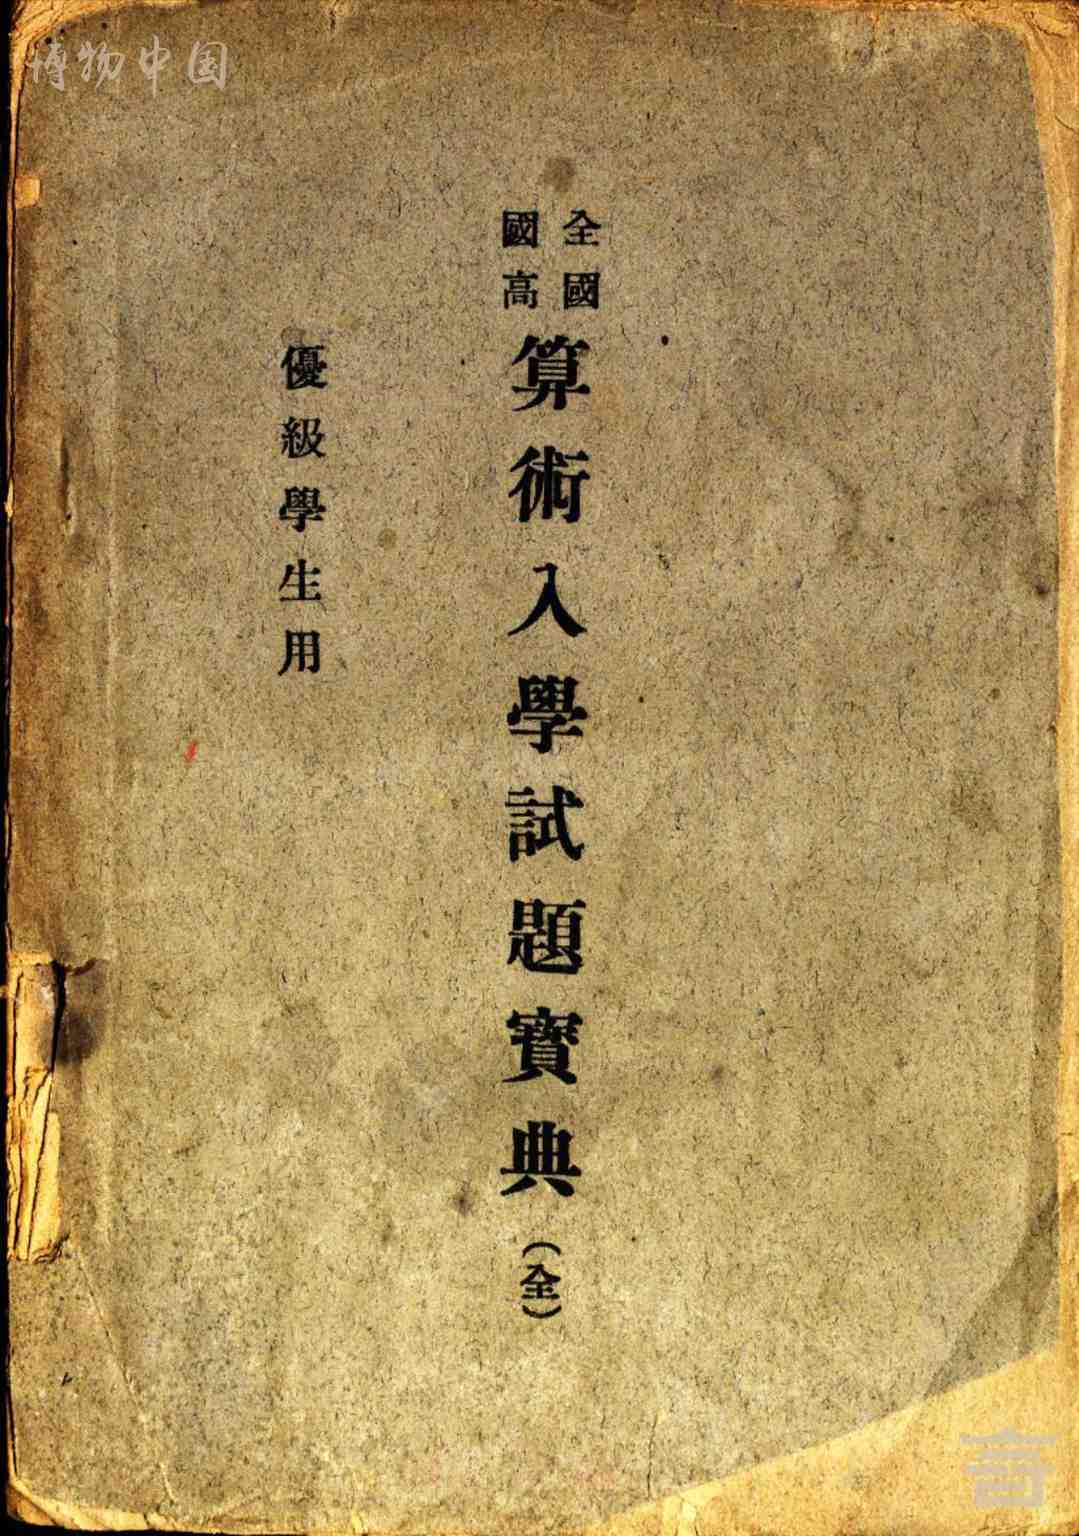 博物中国
全國
國高
算術入學試題寶典(全)
優級學生用